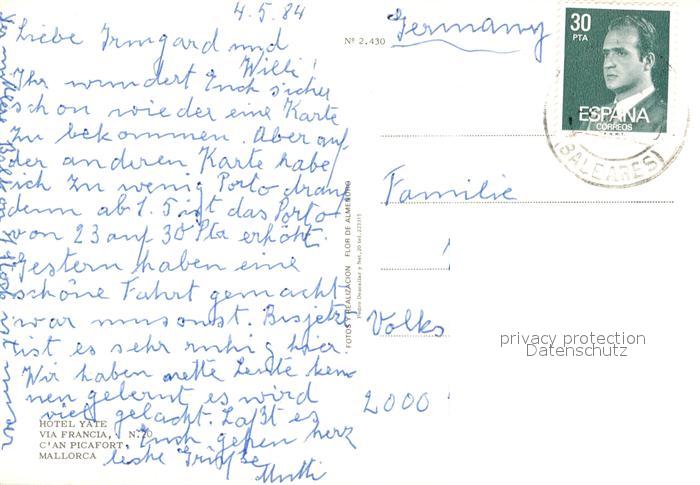 4.5.84
Liebe Irmgard und
Willi!
Ihr wundert Euch sicher
schon wieder eine Karte
zu bekommen. Aber auf
der anderen Karte habe
ich zu wenig Porto dran
denn ab 1. ist das Porto
von 23 auf 30 Pta erhöht.
Gestern haben eine
schöne Fahrt gemacht
war umsonst. Bis jetzt
ist es sehr ruhig hier.
Wir haben nette Leute ken-
nen gelernt es wird
viel gelacht. Laßt es
Euch gehen herz
liche Grüße
Mutti
HOTEL YATE
VIA FRANCIA, N.º 20
C'AN PICAFORT
MALLORCA
Nº 2.430
FOTOS Y REALIZACION FLOR DE ALMENDRO
Germany
30
PTA
ESPAÑA
CORREOS
(BALEARES)
Familie
Volks
2000
privacy protection
Datenschutz